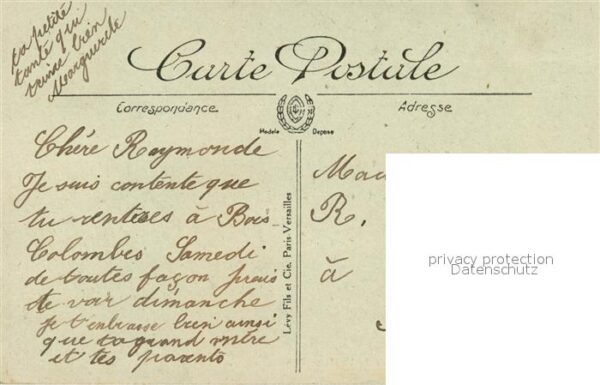 ta petite
tante qui
t'aime bien
Marguerite
Carte Postale
Correspondance
Adresse
Modele Depose
Chére Raymonde
Je suis contente que
tu rentres à Bois
Colombes Samedi
de toutes façon j'irais
te voir dimanche
je t'embrasse bien ainsi
que ta grand mère
et tes parents
Lévy Fils et Cie, Paris-Versailles
R.
à
privacy protection
Datenschutz